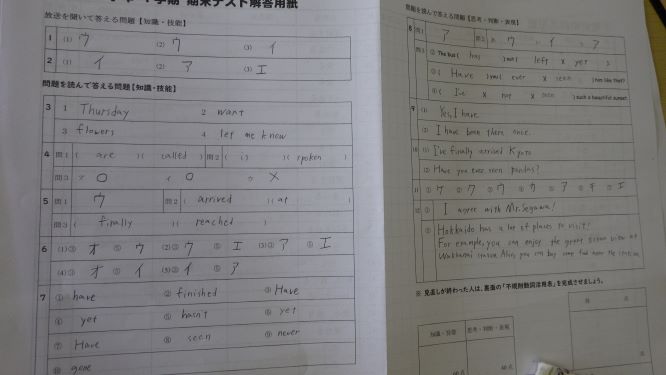 学期 期末テスト解答用紙
放送を聞いて答える問題【知識・技能】
1 (1) ウ (2) ウ (3) イ
2 (1) イ (2) ア (3) エ
問題を読んで答える問題【知識・技能】
3 1 Thursday 2 want
3 flowers 4 let me know
4 問1 ( are )( called ) 問2 ( )( spoken )
問3 ア ○ イ ○ ウ ×
5 問1 ウ 問2 ( arrived )( at )
問3 ( finally )( reached )
6 (1)① オ ② ウ (2)① ウ ② エ (3)① ア ② エ
(4)① オ ② イ (5)① イ ② ア
7 ① have ② finished ③ Have
④ yet ⑤ hasn't ⑥ yet
⑦ Have ⑧ seen ⑨ never
⑩ gone
問題を読んで答える問題【思考・判断・表現】
8 問1 ア 問2 ウ イ ア
問3 ① The bus ( has )( not )( left )( yet )
② ( Have )( )( ever )( seen ) him like that?
③ ( I've )( not )( seen ) such a beautiful sunset
9 (1) Yes, I have.
(2) I have been there once.
10 (1) I've finally arrived Kyoto
(2) Have you ever seen pandas?
11 ① ケ ② ク ③ ウ ④ カ ⑤ ア ⑥ キ ⑦ エ
12 ① I agree with Mr. Segawa!
② Hokkaido has a lot of places to visit!
For example, you can enjoy the great view at
Wakkanai station. Also, you can buy some food near the station.
※ 見直しが終わった人は、裏面の「不規則動詞活用表」を完成させましょう。
知識・技能 思考・判断・表現